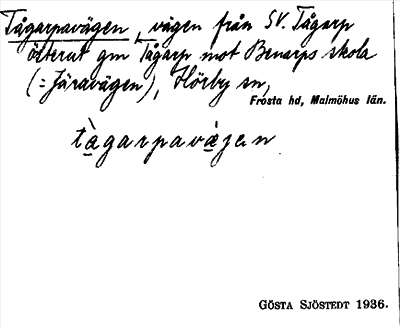 Tågarpavägen, vägen från SV. Tågarp
österut gm Tågarp mot Benarps skola
(= Järavägen), Hörby sn,
Frosta hd, Malmöhus län.
tàgarpavàgen
GÖSTA SJÖSTEDT 1936.